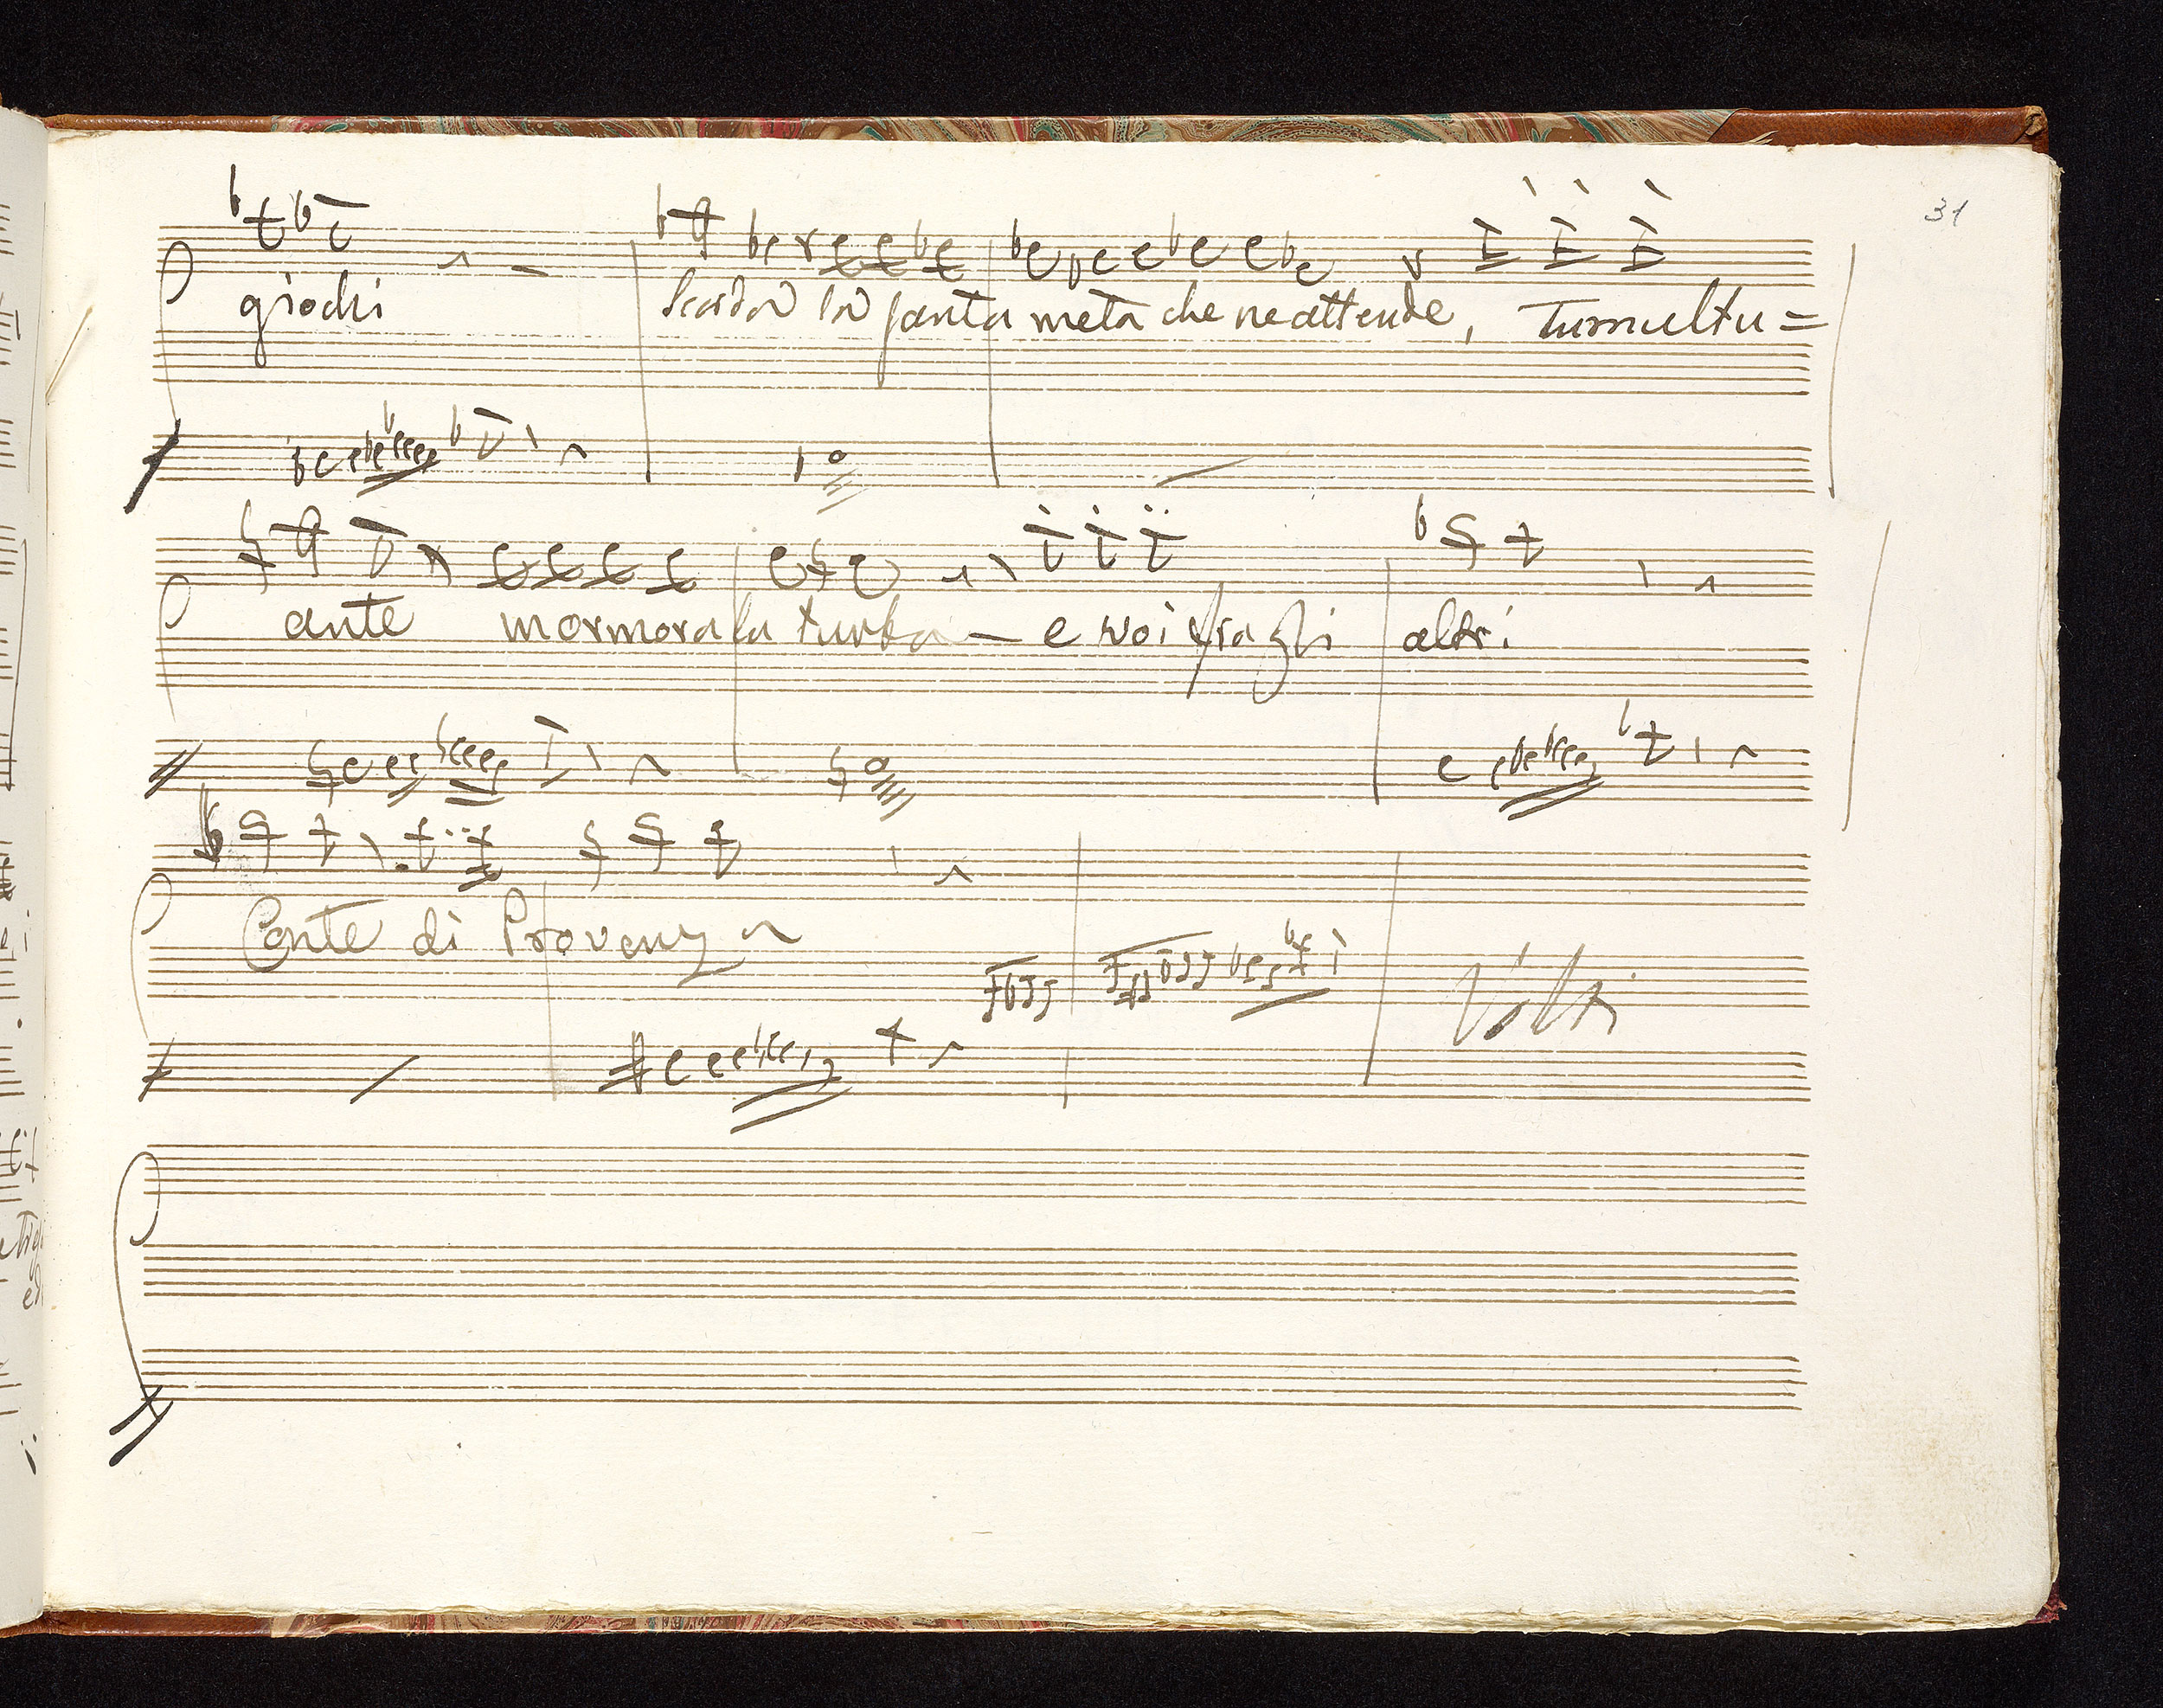 31
giochi scorda la santa meta che ne attende, Tumultu=
ante mormora la turba — e voi fra gli altri
Conte di Provenza
Volti